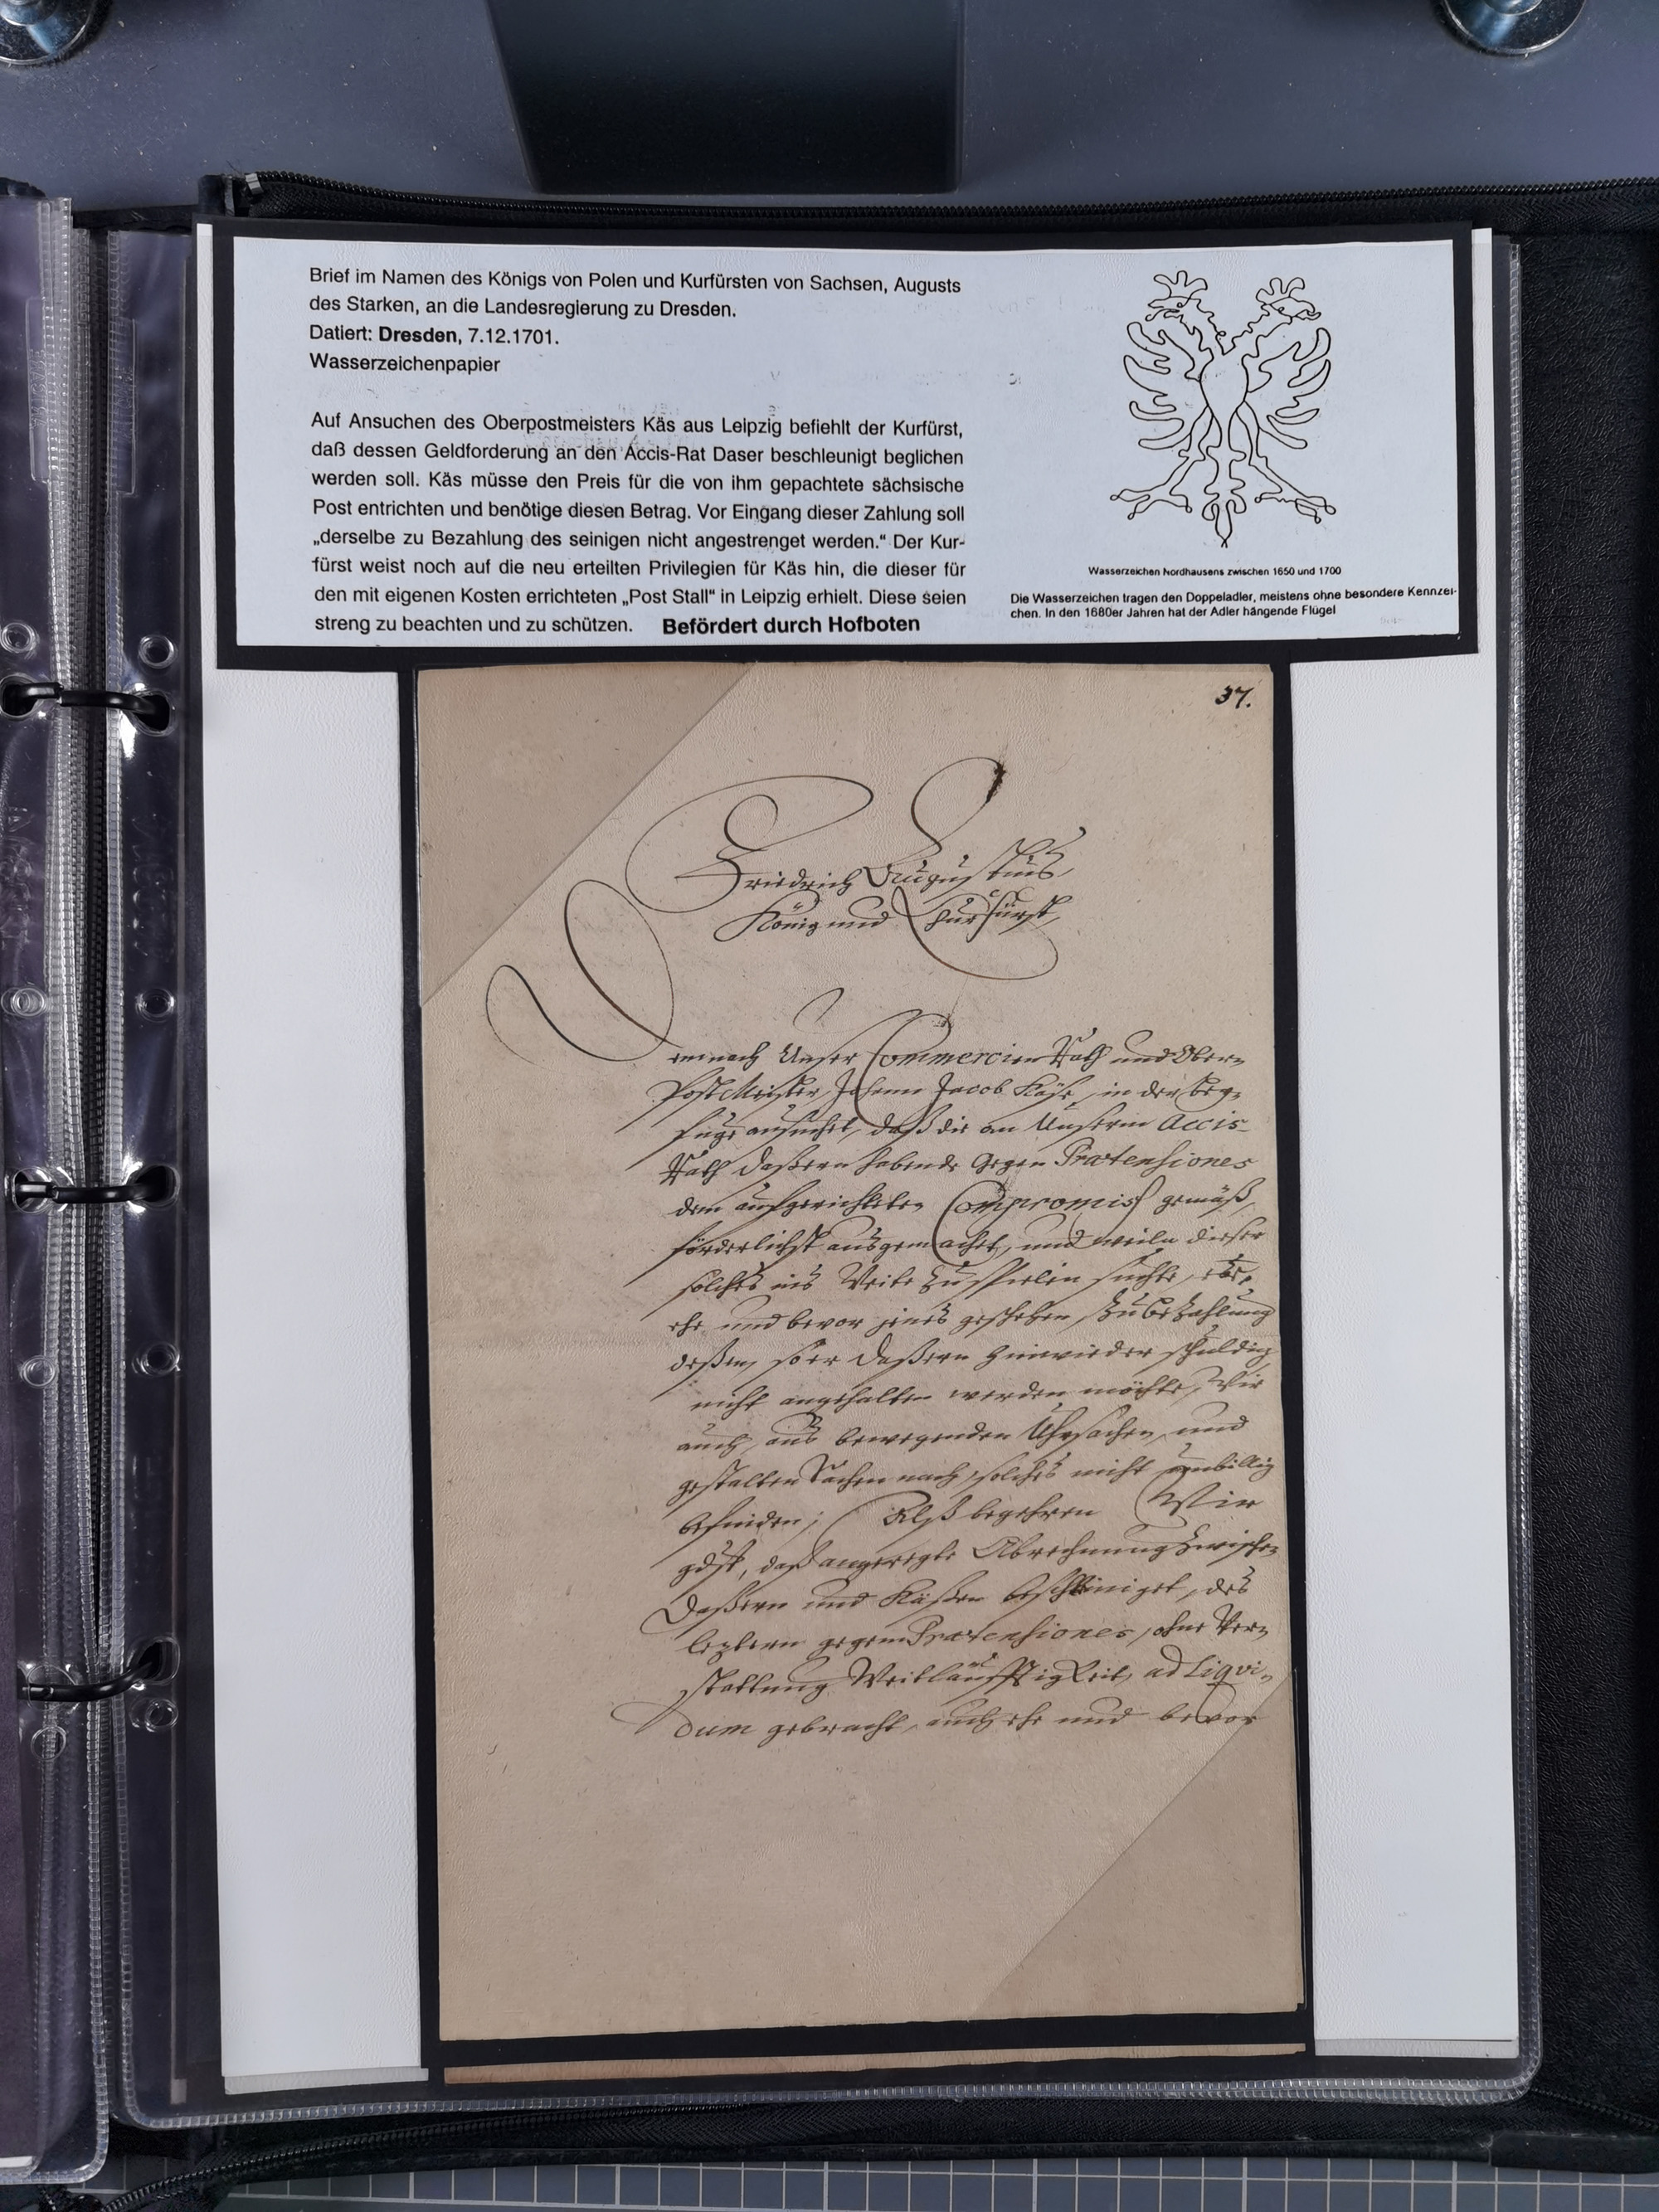 Brief im Namen des Königs von Polen und Kurfürsten von Sachsen, Augusts
des Starken, an die Landesregierung zu Dresden.
Datiert: Dresden, 7.12.1701.
Wasserzeichenpapier
Auf Ansuchen des Oberpostmeisters Käs aus Leipzig befiehlt der Kurfürst,
daß dessen Geldforderung an den Accis-Rat Daser beschleunigt beglichen
werden soll. Käs müsse den Preis für die von ihm gepachtete sächsische
Post entrichten und benötige diesen Betrag. Vor Eingang dieser Zahlung soll
„derselbe zu Bezahlung des seinigen nicht angestrenget werden.“ Der Kur-
fürst weist noch auf die neu erteilten Privilegien für Käs hin, die dieser für
den mit eigenen Kosten errichteten „Post Stall“ in Leipzig erhielt. Diese seien
streng zu beachten und zu schützen. Befördert durch Hofboten
Wasserzeichen Nordhausens zwischen 1650 und 1700
Die Wasserzeichen tragen den Doppeladler, meistens ohne besondere Kennzei-
chen. In den 1680er Jahren hat der Adler hängende Flügel
37.
Friedrich Augustus,
König und Churfürst,
Demnach Unser Commercien Rath und Ober-
PostMeister, Johann Jacob Käse, in der bey-
fuge ansuchet, daß die an Unserm Accis-
Rath Daßern habende Gegen Prætensiones
dem aufgerichteten Compromiss gemäß,
förderlichst ausgemachet, und weiln dieser
solches ins Weite zu spielen suchte,
ehe und bevor jenes geschehen, zu Bezahlung
deßen, so er Daßern hinwieder schuldig
nicht angehalten werden möchte, Wir
auch, aus bewegenden Uhrsachen, und
gestalten Sachen nach, solches nicht unbillig
befinden; Alß begehren Wir
gdst, daß angeregte Abrechnung zwischen
Daßern und Käßen beschleuniget, des
leztern gegen Prætensiones, ohne Ver-
stattung Weitläufftigkeit, ad Liqvi-
dum gebracht, auch ehe und bevor